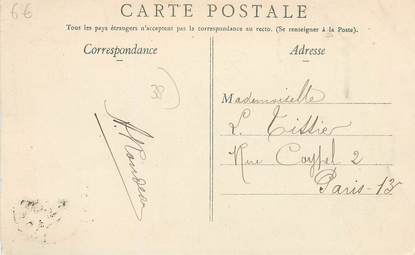 66
CARTE POSTALE
Tous les pays étrangers n'acceptent pas la correspondance au recto. (Se renseigner à la Poste).
Correspondance
38
Adresse
Mademoiselle
L. Tissier
Rue Coypel 2
Paris-13